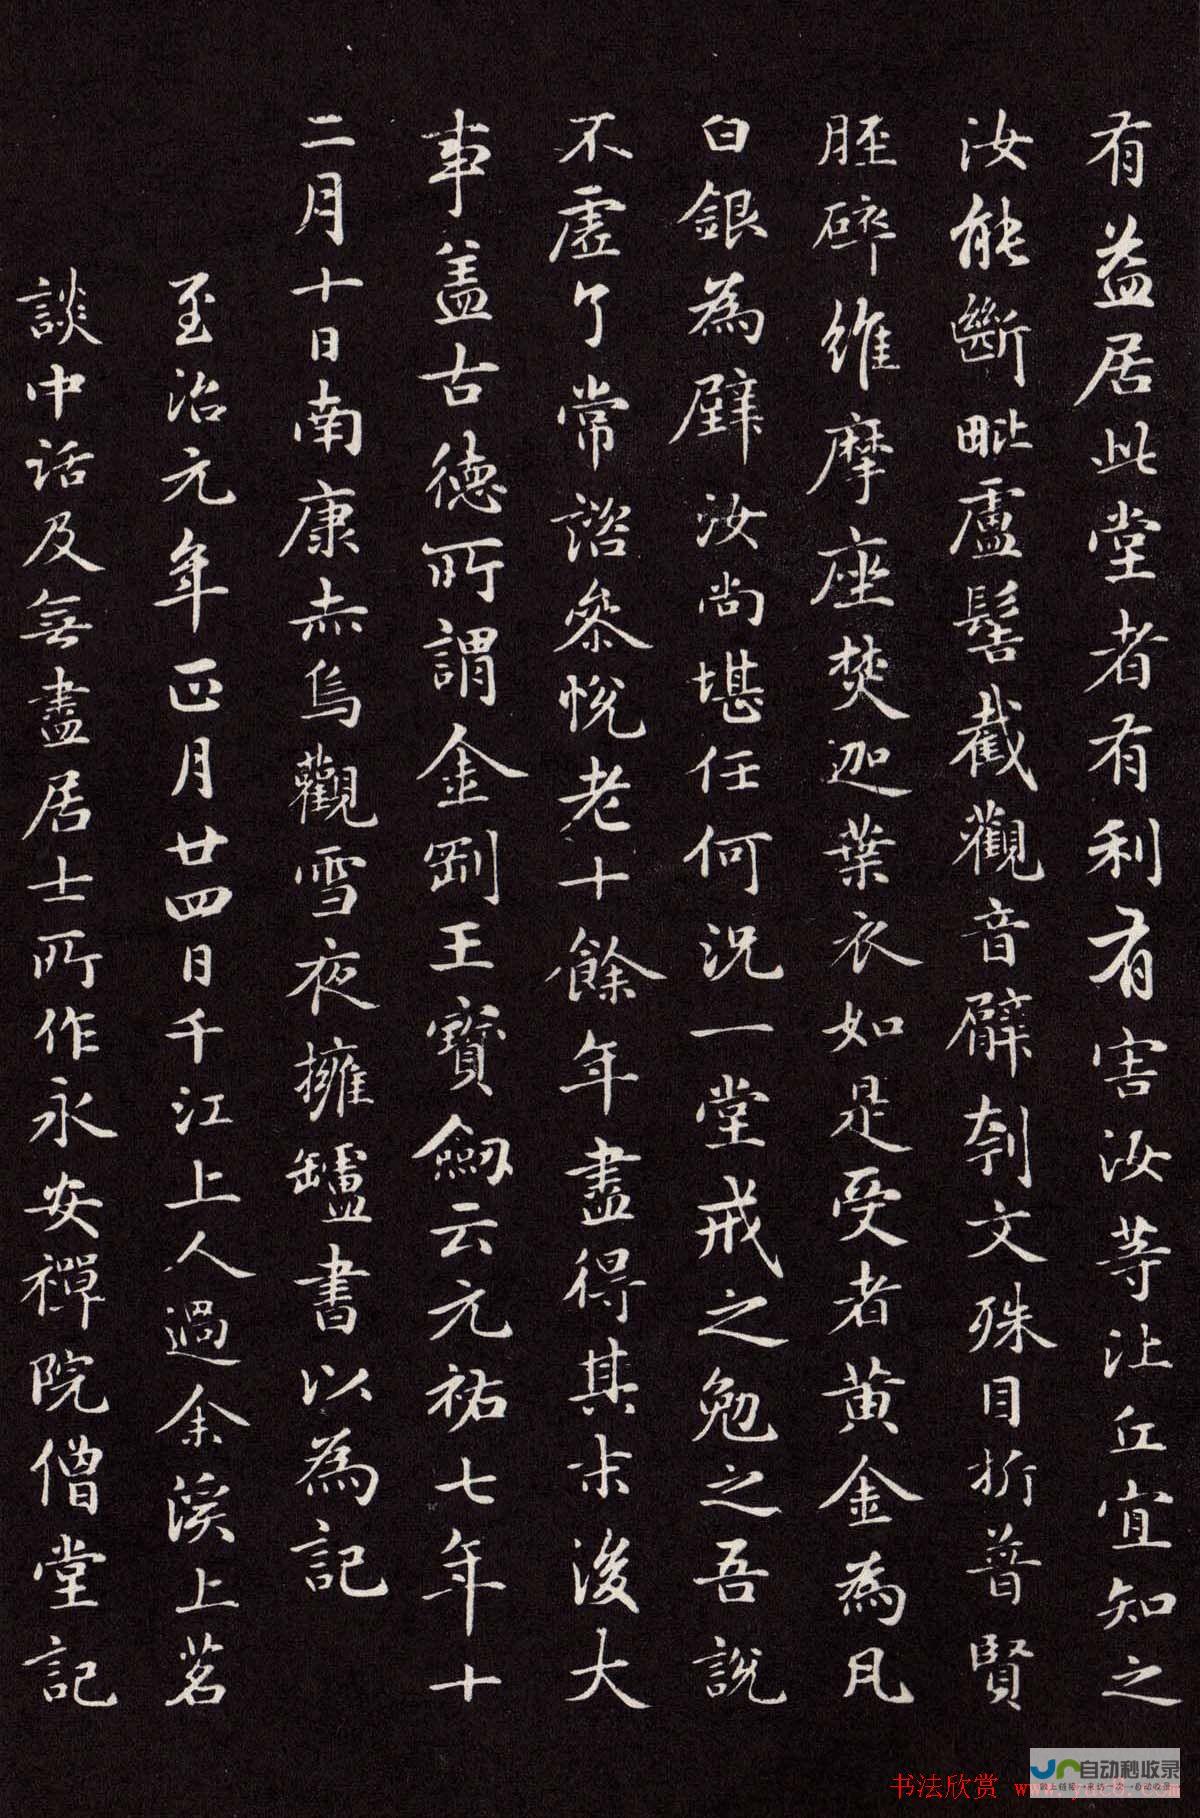 有益居此堂者有利有害汝等比丘宜知之
汝能斷毗盧髻截觀音臂刳文殊目折普賢
脛碎維摩座焚迦葉衣如是受者黃金為瓦
白銀為壁汝尚堪任何況一堂戒之勉之吾說
不虛了常諮參悅老十餘年盡得其末後大
事盖古德所謂金剛王寶劒云元祐七年十
二月十日南康赤烏觀雪夜擁鑪書以為記
至治元年正月廿四日千江上人過余溪上茗
談中話及無盡居士所作永安禪院僧堂記
自动秒收录
书法欣赏